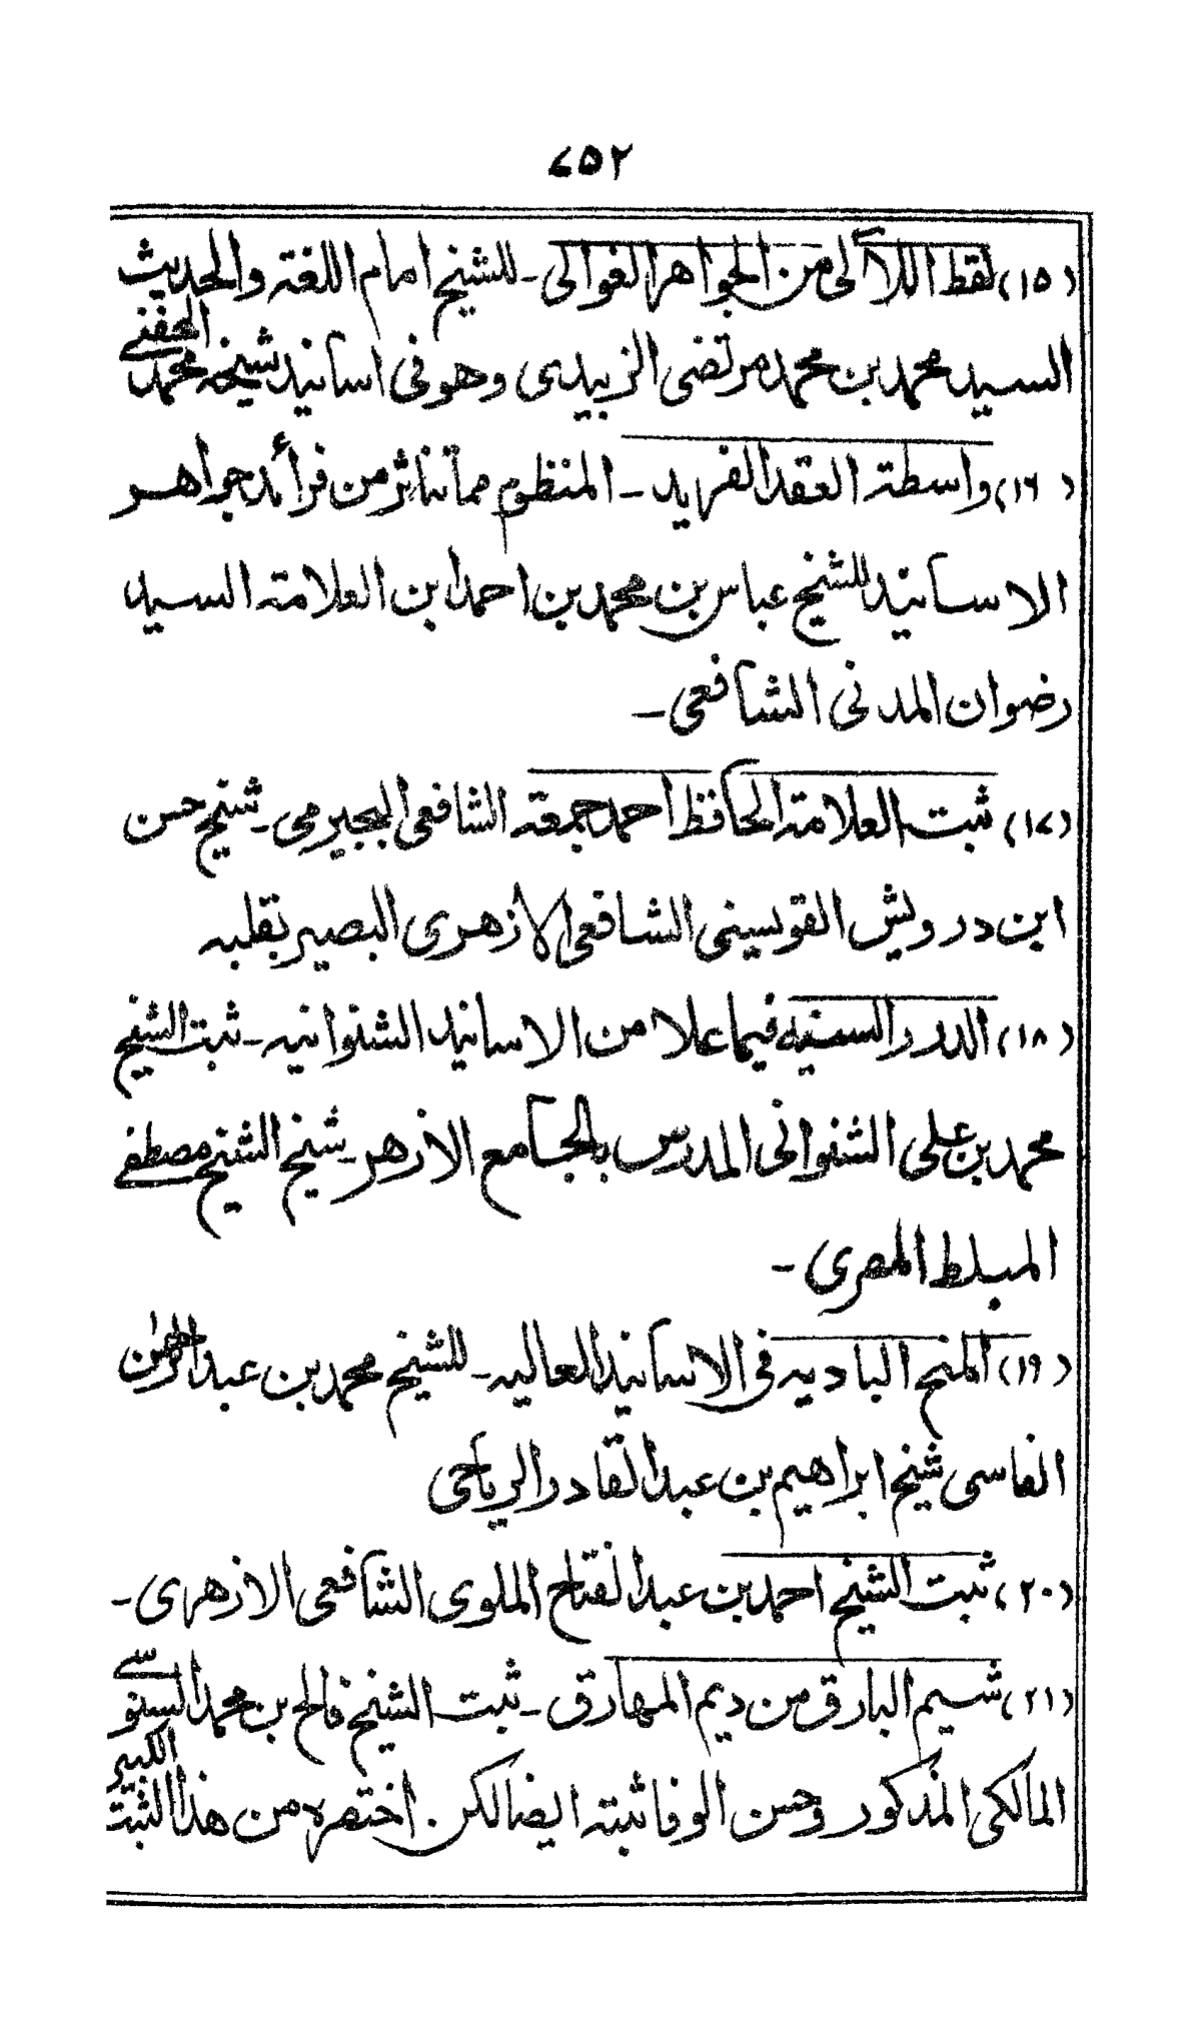 ٤٥٢
(١٥) لقط اللآلى من الجواهر الغوالى ـ للشيخ امام اللغة والحديث
السيد محمد بن محمد مرتضى الزبيدى وهو فى اسانيد شيخه محمد الحفنى
(١٦) واسطة العقد الفريد ـ المنظوم مما تناثر من فرائد جواهر
الاسانيد للشيخ عباس بن محمد بن احمد ابن العلامة السيد
رضوان المدنى الشافعى ـ
(١٧) ثبت العلامة الحافظ احمد جمعة الشافعى البجيرمى ـ شيخ حسن
ابن درويش القويسينى الشافعى الازهرى البصير بقلبه
(١٨) الدرر السنيه فيما علا من الاسانيد الشنوانيه ـ ثبت الشيخ
محمد بن على الشنوانى المدرس بالجامع الازهر ـ شيخ الشيخ مصطفے
المبلط المصرى ـ
(١٩) المنح الباديه فى الاسانيد العاليه ـ للشيخ محمد بن عبد الرحمٰن
الفاسى شيخ ابراهيم بن عبد القادر الرياحى
(٢٠) ثبت الشيخ احمد بن عبد الفتاح الملوى الشافعى الازهرى ـ
(٢١) شيم البارق من ديم المهارق ـ ثبت الشيخ فالح بن محمد السنوسے
المالكى المذكور وحسن الوفا ثبته ايضا لكن اختصره من هذا الثبت الكبير